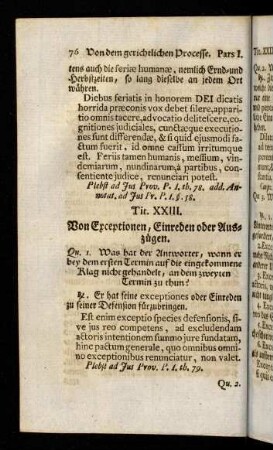 76 Von dem gerichtlichen Processe. Pars I.
tens auch die feriæ humanæ, nemlich Ernd- und
Herbstzeiten, so lang dieselbe an jedem Ort
währen.
Diebus feriatis in honorem DEI dicatis
horrida præconis vox debet silere, apparitio
omnis tacere, advocatio delitescere, co-
gnitiones judiciales, cunctæque executio-
nes sunt differendæ, & si quid ejusmodi fa-
ctum fuerit, id omne cassum irritumque
est. Feriis tamen humanis, messium, vin-
demiarum, nundinarum, à partibus, con-
sentiente judice, renunciari potest.
Plebst ad Jus Prov. P. I. th. 78. add. An-
notat. ad Jus Pr. P. I. §. 58.
Tit. XXIII.
Von Exceptionen, Einreden oder Aus-
zügen.
Qu. 1. Was hat der Antworter, wann er
bey dem ersten Termin auf die eingekommene
Klag nicht gehandelt, an dem zweyten
Termin zu thun?
℞. Er hat seine exceptiones oder Einreden
zu seiner Defension fürzubringen.
Est enim exceptio species defensionis, si-
ve jus reo competens, ad excludendam
actoris intentionem summo jure fundatam,
hinc pactum generale, quo omnibus omni-
no exceptionibus renunciatur, non valet.
Plebst ad Jus Prov. P. I. th. 79.
Qu. 2.